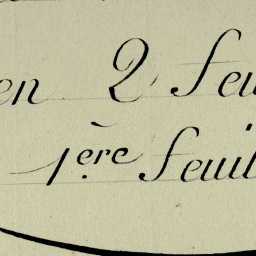 en 2 feu
1ère feuil